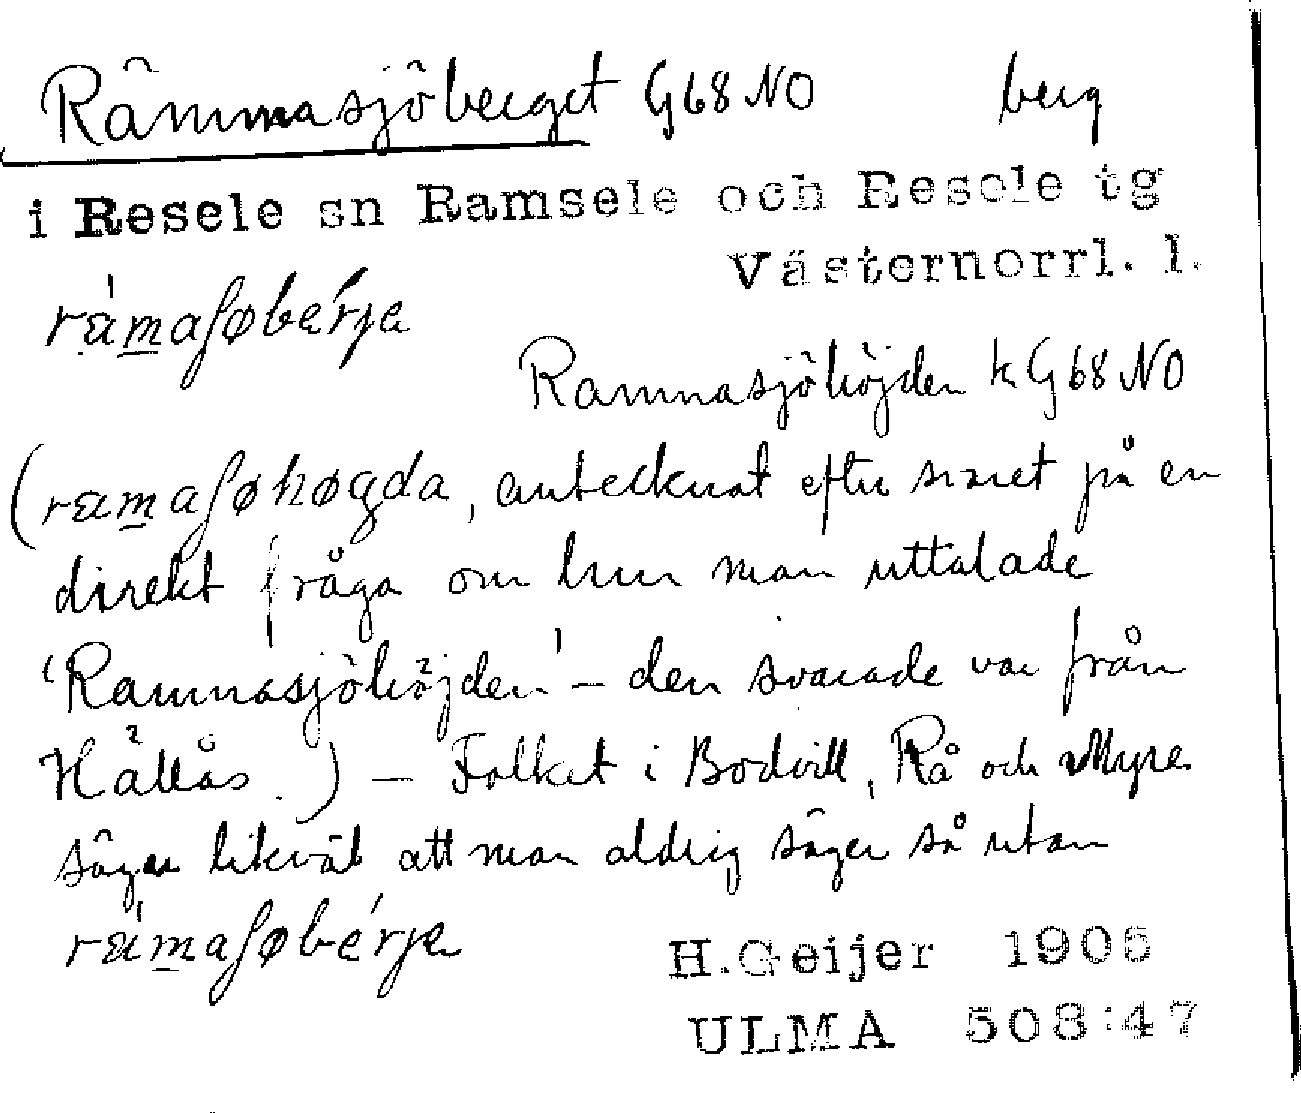 Rämmasjöberget G68NO berg
i Resele sn Ramsele och Resele tg
Västernorrl. l.
rämaʃøbérje
Ramnasjöhöjden k G68NO
(rämaʃøhøgda, antecknat efter svaret på en
direkt fråga om hur man uttalade
'Ramnasjöhöjden' – den svarade var från
Hällås.) – Folket i Bodvill, Rå och Myre
säger likväl att man aldrig säger så utan
rämaʃøbérje
H.Geijer 1905
ULMA 508:47